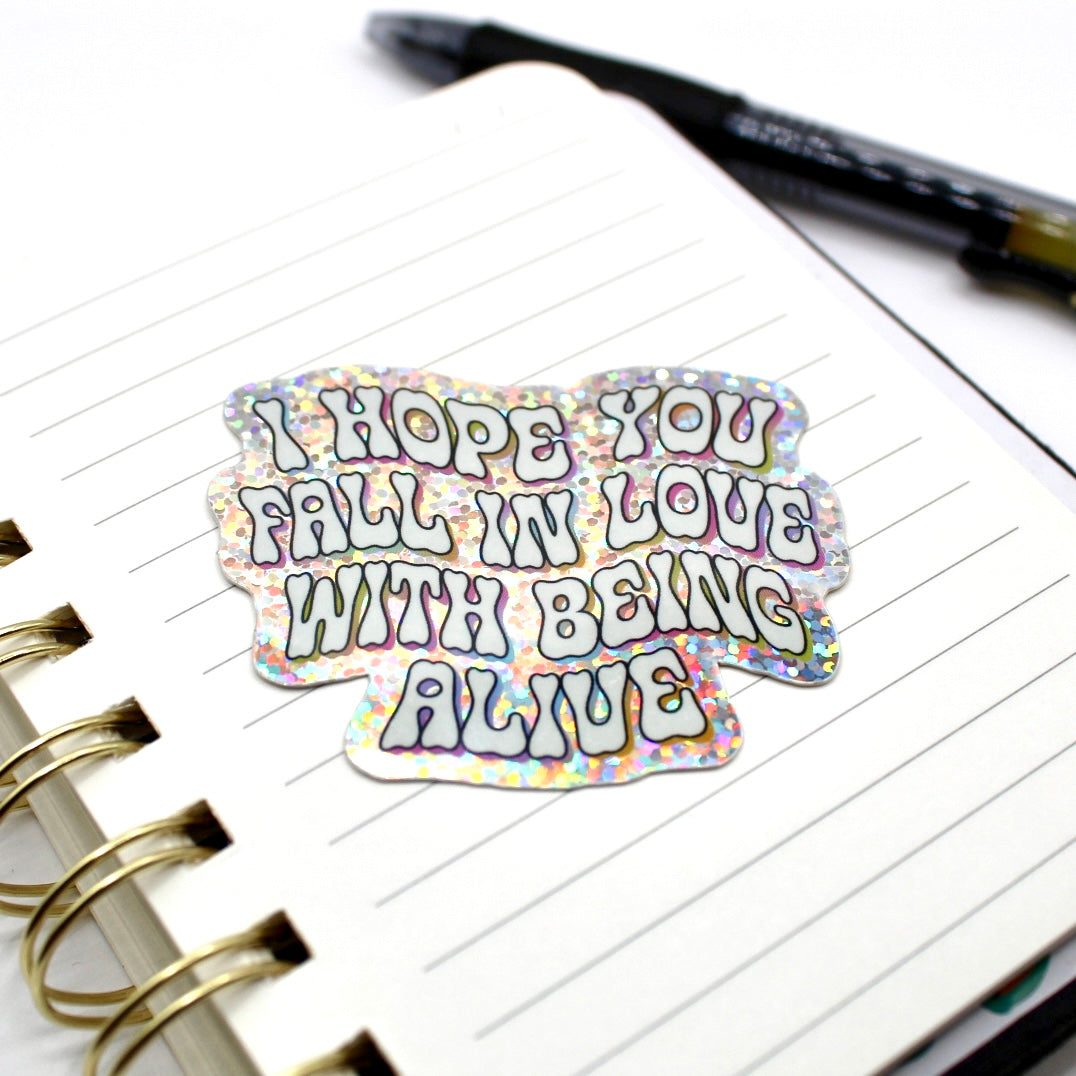 I HOPE YOU
FALL IN LOVE
WITH BEING
ALIVE